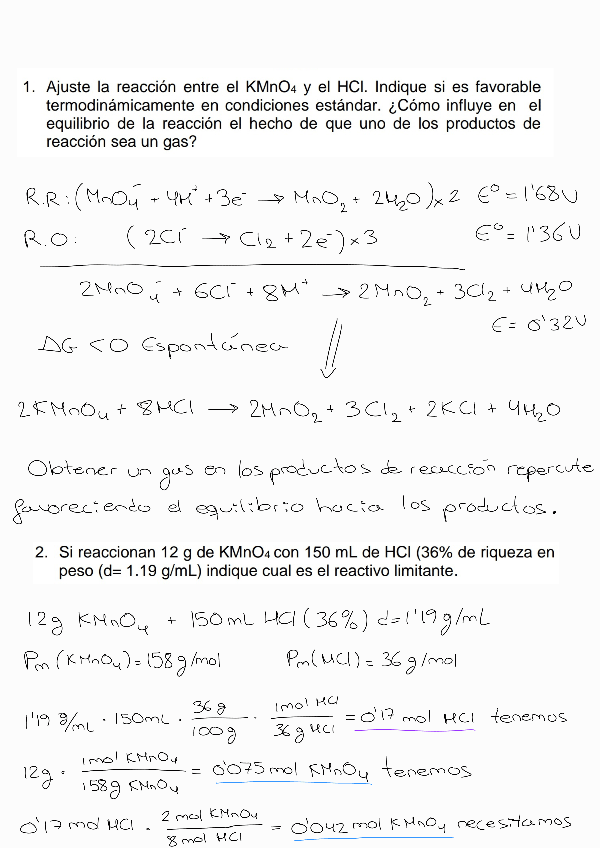 1. Ajuste la reacción entre el KMnO₄ y el HCl. Indique si es favorable
termodinámicamente en condiciones estándar. ¿Cómo influye en el
equilibrio de la reacción el hecho de que uno de los productos de
reacción sea un gas?
R.R: (MnO₄⁻ + 4H⁺ + 3e⁻ → MnO₂ + 2H₂O) x 2 E° = 1'68V
R.O: (2Cl⁻ → Cl₂ + 2e⁻) x 3 E° = 1'36V
2MnO₄⁻ + 6Cl⁻ + 8H⁺ → 2MnO₂ + 3Cl₂ + 4H₂O
E = 0'32V
ΔG < 0 Espontánea
2KMnO₄ + 8HCl → 2MnO₂ + 3Cl₂ + 2KCl + 4H₂O
Obtener un gas en los productos de reacción repercute
favoreciendo el equilibrio hacia los productos.
2. Si reaccionan 12 g de KMnO₄ con 150 mL de HCl (36% de riqueza en
peso (d= 1.19 g/mL) indique cual es el reactivo limitante.
12g KMnO₄ + 150mL HCl (36%) d=1'19g/mL
Pm (KMnO₄) = 158g/mol Pm(HCl) = 36g/mol
1'19 g/mL · 150mL · 36g/100g · 1mol HCl/36g HCl = 0'17 mol HCl tenemos
12g · 1mol KMnO₄/158g KMnO₄ = 0'075mol KMnO₄ tenemos
0'17mol HCl · 2 mol KMnO₄/8mol HCl = 0'042mol KMnO₄ necesitamos